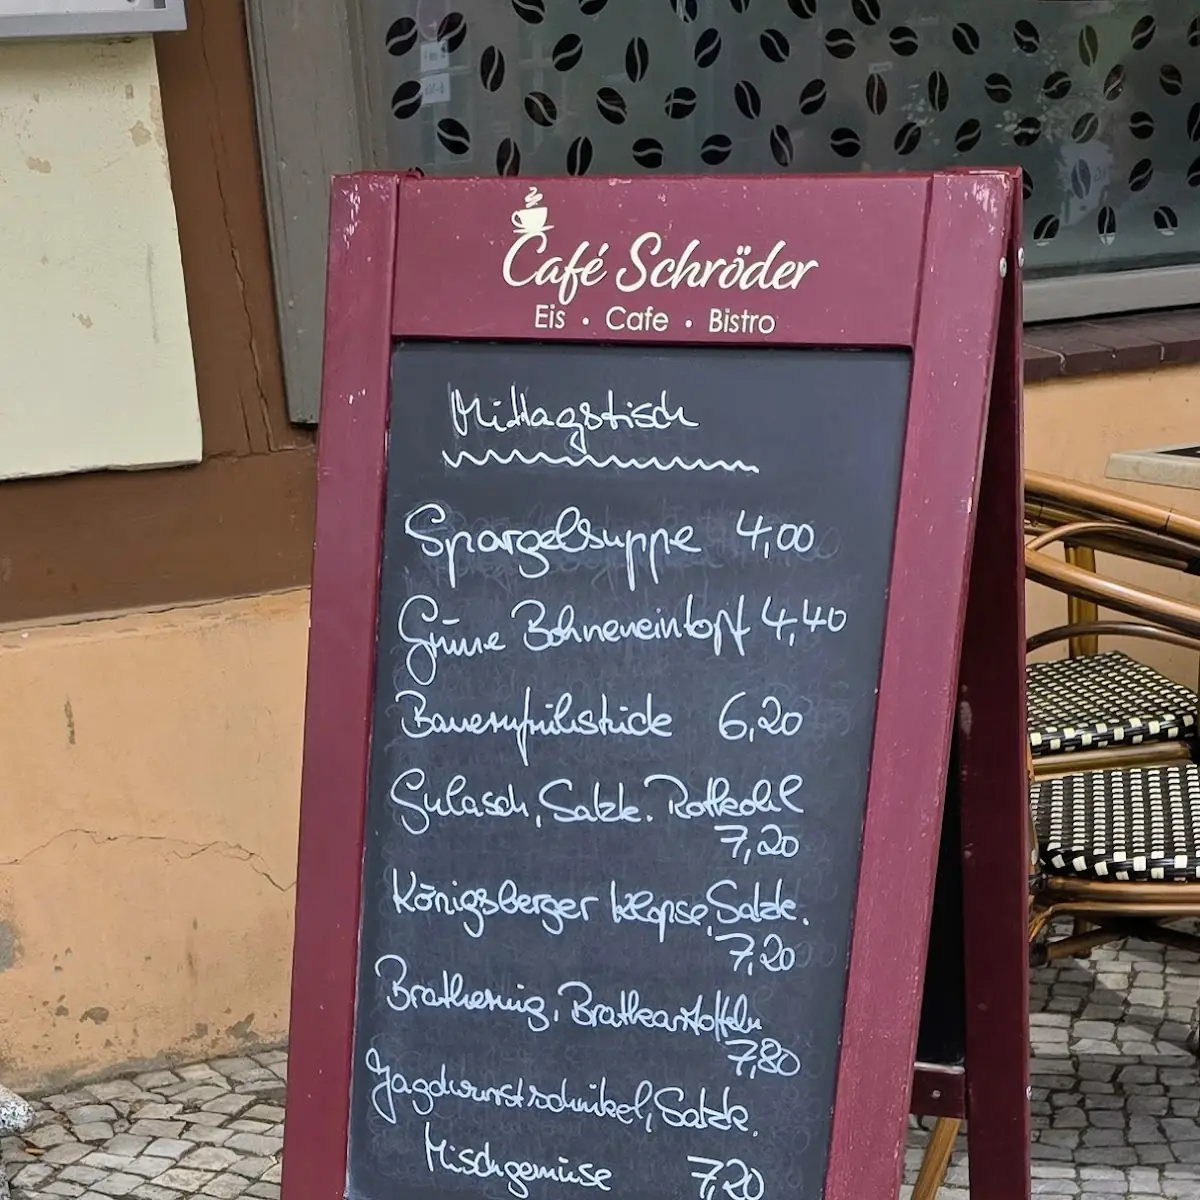 Café Schröder
Eis · Cafe · Bistro
Mittagstisch
Spargelsuppe 4,00
Grüne Bohneneintopf 4,40
Bauernfrühstück 6,20
Gulasch, Salzk. Rotkohl
7,20
Königsberger Klopse, Salzk.
7,20
Brathering, Bratkartoffeln
7,80
Jagdwurstschnikel, Salzk.
Mischgemüse 7,20